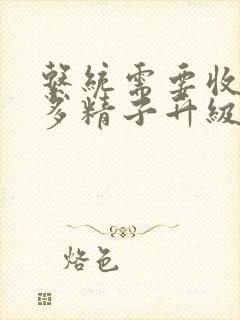 繫統需要收
多精子升級
烙色